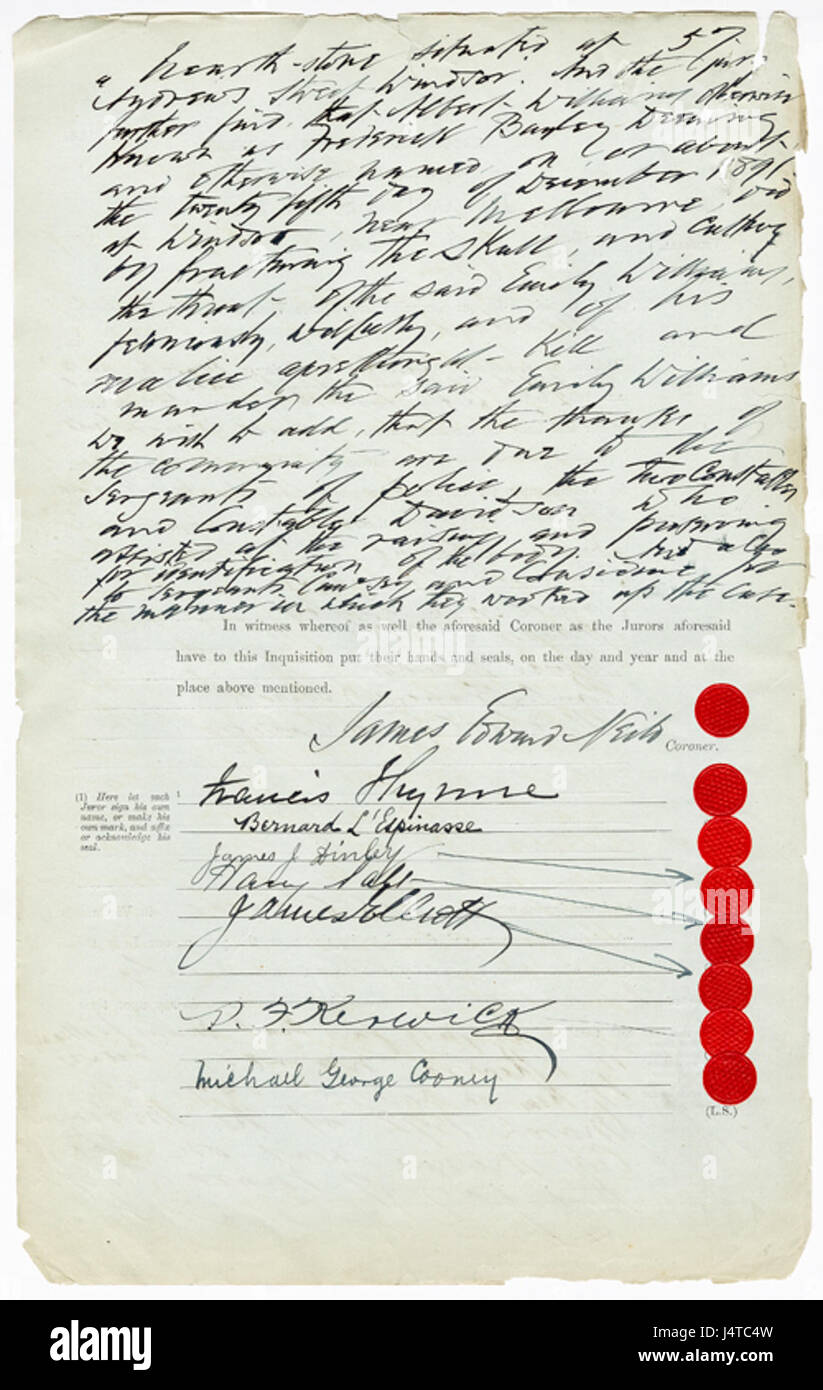 a hearth-stone situated at 57
Andrew's Street Windsor. And the Jury
further find that Albert Williams otherwise
known as Frederick Bayley Deeming
and otherwise named, on or about
the twenty fifth day of December 1891
at Windsor, near Melbourne, did
by fracturing the skull, and cutting
the throat of the said Emily Williams,
feloniously, wilfully, and of his
malice aforethought kill and
murder the said Emily Williams
We wish to add, that the thanks of
the community are due to the
Sergeants of police, the two Constables
and Constable Davidson who
assisted at the raising and preserving
for identification of the body. And also
to Sergeants Cawsey and Considine for
the manner in which they worked up the case.
In witness whereof as well the aforesaid Coroner as the Jurors aforesaid
have to this Inquisition put their hands and seals, on the day and year and at the
place above mentioned.
James Edward Neild
Coroner.
(1) Here let each
Juror sign his own
name, or make his
own mark, and affix
or acknowledge his
seal.
Francis Hynne
Bernard L'Espinasse
James J Dinley
Harry
James Elliott
D. F. Kerwick
Michael George Cooney
(L.S.)
alamy
alamy
alamy
a
a
a
a
a
alamy
Image ID: J4TC4W
www.alamy.com